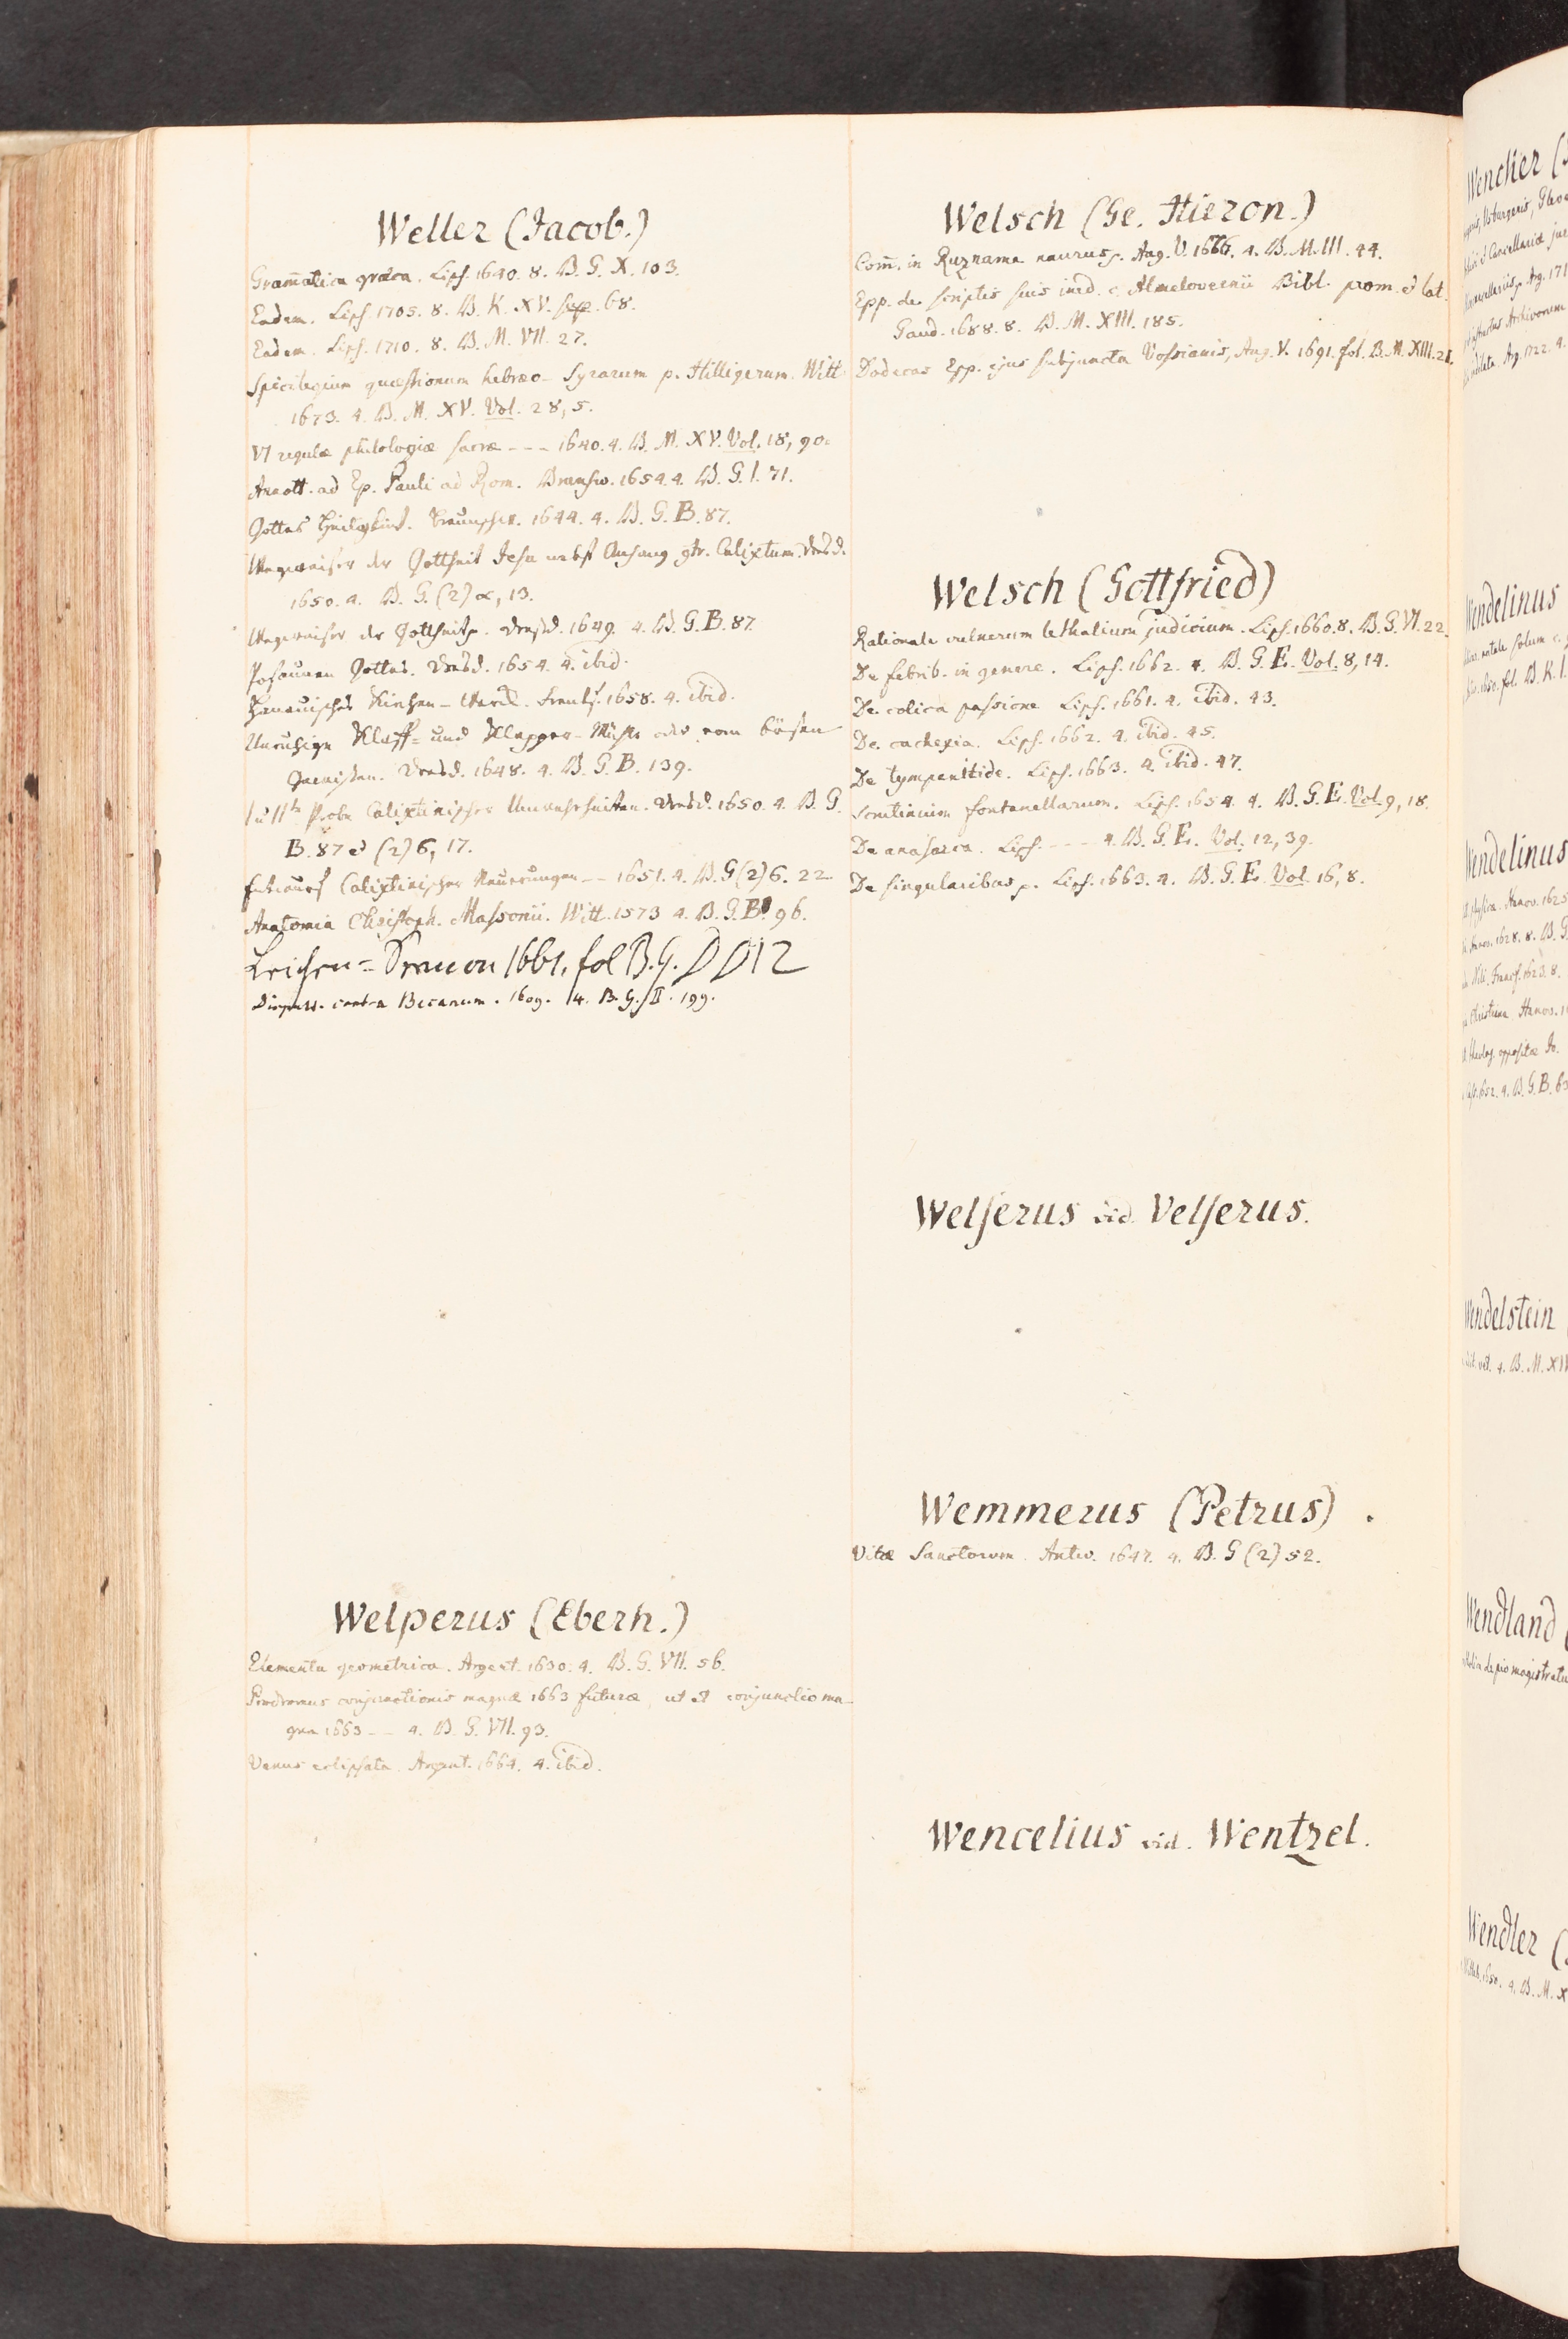 Weller (Jacob.)
Gram̄atica græca. Lips. 1640. 8. B. G. X. 103.
Eadem. Lips. 1705. 8. B. K. XV. sep. 68.
Eadem. Lips. 1710. 8. B. M. VII. 27.
Spicilegium quæstionum hebræo-Syrarum p. Hilligerum. Witt.
1673. 4. B. M. XV. Vol. 28, 5.
VI regulæ philologiæ sacræ --- 1640. 4. B. M. XV. Vol. 18, 90.
Annott. ad Ep. Pauli ad Rom. Brunsw. 1654. 4. B. G. I. 71.
Gottes Heiligkeit. Braunschw. 1644. 4. B. G. B. 87.
Wegweiser der Gottheit Jesu nebst Anhang gtr. Calixtum. Dresd.
1650. 4. B. G. (2) α, 13.
Wegweiser der Gottheit p. Dresd. 1649. 4. B. G. B. 87.
Posaunen Gottes. Dresd. 1654. 4. ibid.
Hanauisches Kirchen- 1658. 4. ibid.
Unruhige Klaff= und Klapper-Mühle oder vom bösen
Gewissen. Dresd. 1648. 4. B. G. B. 139.
I u IIte Probe Calixtinischer Unwahrheiten. Dresd. 1650. 4. B. G.
B. 87 et (2) 6, 17.
Entwurf Calixtinischer Neuerungen -- 1651. 4. B. G (2) 6. 22
Anatomia Christoph. Massonii. Witt. 1573 4. B. G. B. 96.
Leichen= 1661. fol B. G. DD12
contra Becanum. 1609. 4. B. G. II. 199.
Welperus (Eberh.)
Elementa geometrica. Argent. 1630. 4. B. G. VII. 56.
Prodromus conjunctionis magnæ 1663 futuræ, ut et conjunctio ma-
gna 1663 -- 4. B. G. VII. 93.
Venus eclipsata. Argent. 1664. 4. ibid.
Welsch (Ge. Hieron.)
Com̄. in Ruzname naurus p. Aug. V. 1676. 4. B. M. III. 44.
Epp. de scriptis suis ined. c. Almeloveenii Bibl. prom. et lat.
Gaud. 1688. 8. B. M. XIII. 185.
Dodecas Epp. ejus subjuncta Vossianis, Aug. V. 1691. fol. B. M. XIII. 21.
Welsch (Gottfried)
Rationale vulnerum lethalium judicium. Lips. 1660. 8. B. G. VI. 22.
De febrib. in genere. Lips. 1662. 4. B. G. E. Vol. 8, 14.
De colica passione Lips. 1661. 4. ibid. 43.
De cachexia. Lips. 1662. 4. ibid. 45.
De tympanitide. Lips. 1663. 4. ibid. 47.
Scrutinium fontanellarum. Lips. 1654. 4. B. G. E. Vol. 9, 18.
De anasarca. Lips. --- 4. B. G. E. Vol. 12, 39.
De singularibus p. Lips. 1663. 4. B. G. E. Vol. 16, 8.
Welserus vid. Velserus.
Wemmerus (Petrus)
Vitæ Sanctorum. Antw. 1647. 4. B. G (2) 52.
Wencelius vid. Wentzel.
Wencker
Wendelinus
Wendelinus
Wendelstein
Wendland
Wendler